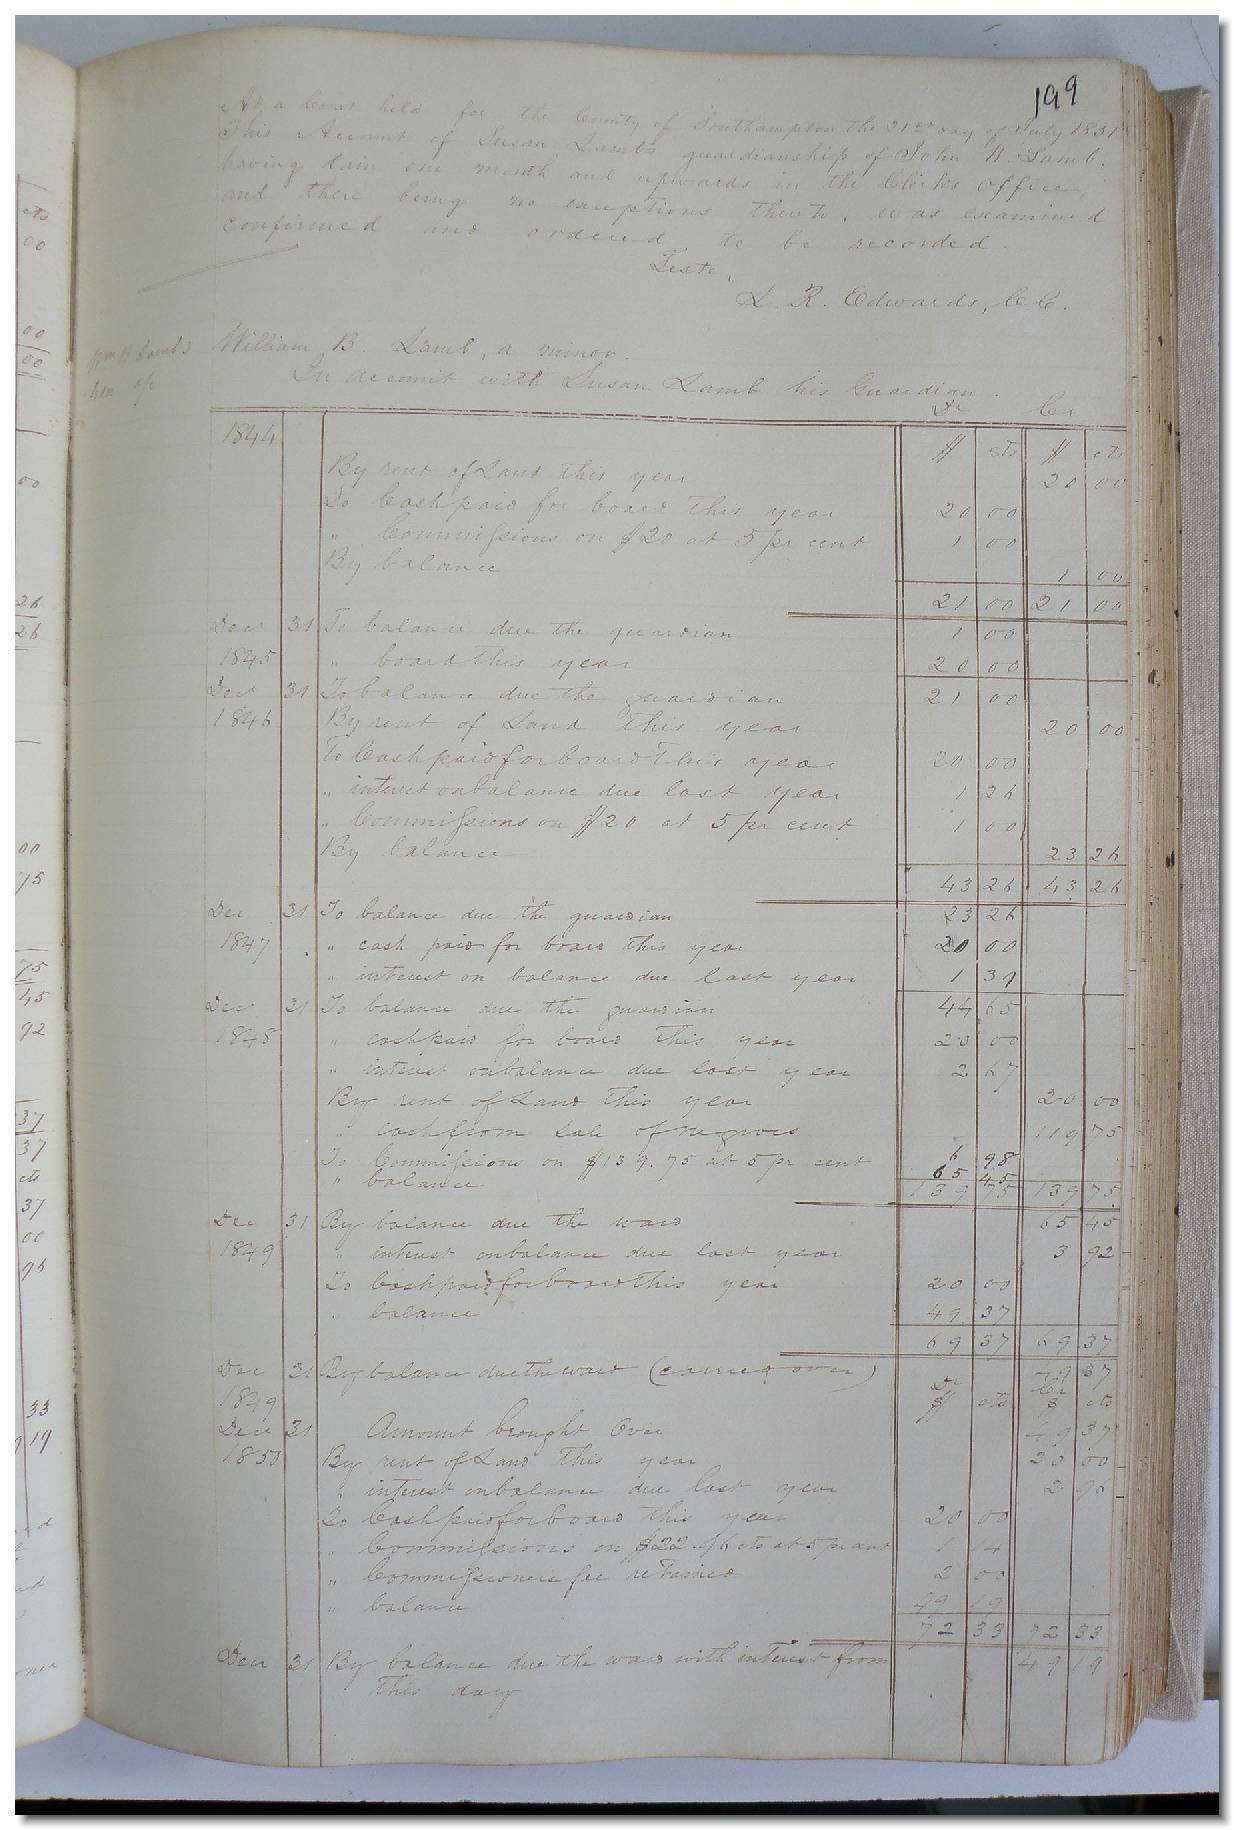 199
At a Court held for the County of Southampton the 21st day of July 1851
This Account of Susan Lamb's guardianship of John W. Lamb.
having lain one month and upwards in the Clerks office,
and there being no exceptions thereto. was examined
confirmed and ordered to be recorded.
Teste,
L. R. Edwards, C.C.
Wm B Lamb's
Gdn a/c
William B. Lamb, a minor.
In account with Susan Lamb his Guardian.
Dr Cr
1844 $ cts $ cts
By rent of Land this year 20 00
To Cash paid for board this year 20 00
" Commissions on $20 at 5 pr cent 1 00
By balance 1 00
21 00 21 00
Dec 31 To balance due the guardian 1 00
1845 " board this year 20 00
Dec 31 To balance due the guardian 21 00
1846 By rent of Land this year 20 00
To Cash paid for board this year 20 00
" interest on balance due last year 1 26
" Commissions on $20 at 5 pr cent 1 00
By balance 23 26
43 26 43 26
Dec 31 To balance due the guardian 23 26
1847 " cash paid for board this year 20 00
" interest on balance due last year 1 39
Dec 31 To balance due the guardian 44 65
1848 " cash paid for board this year 20 00
" interest on balance due last year 2 67
By rent of Land this year 20 00
" cash from sale of negroes 119 75
To Commissions on $139.75 at 5 pr cent 6 98
" balance 65 45
139 75 139 75
Dec 31 By balance due the ward 65 45
1849 " interest on balance due last year 3 92
To Cash paid for board this year 20 00
" balance 49 37
69 37 69 37
Dec 31 By balance due the ward (carried over) 49 37
1849 Dr $ cts Cr $ cts
Dec 31 Amount brought Over 49 37
1850 By rent of Land this year 20 00
" interest on balance due last year 2 96
To Cash paid for board this year 20 00
" Commissions on $22.96 cts at 5 pr cent 1 14
" Commissioners fee retained 2 00
" balance 49 19
72 33 72 33
Dec 31 By balance due the ward with interest from 49 19
this day